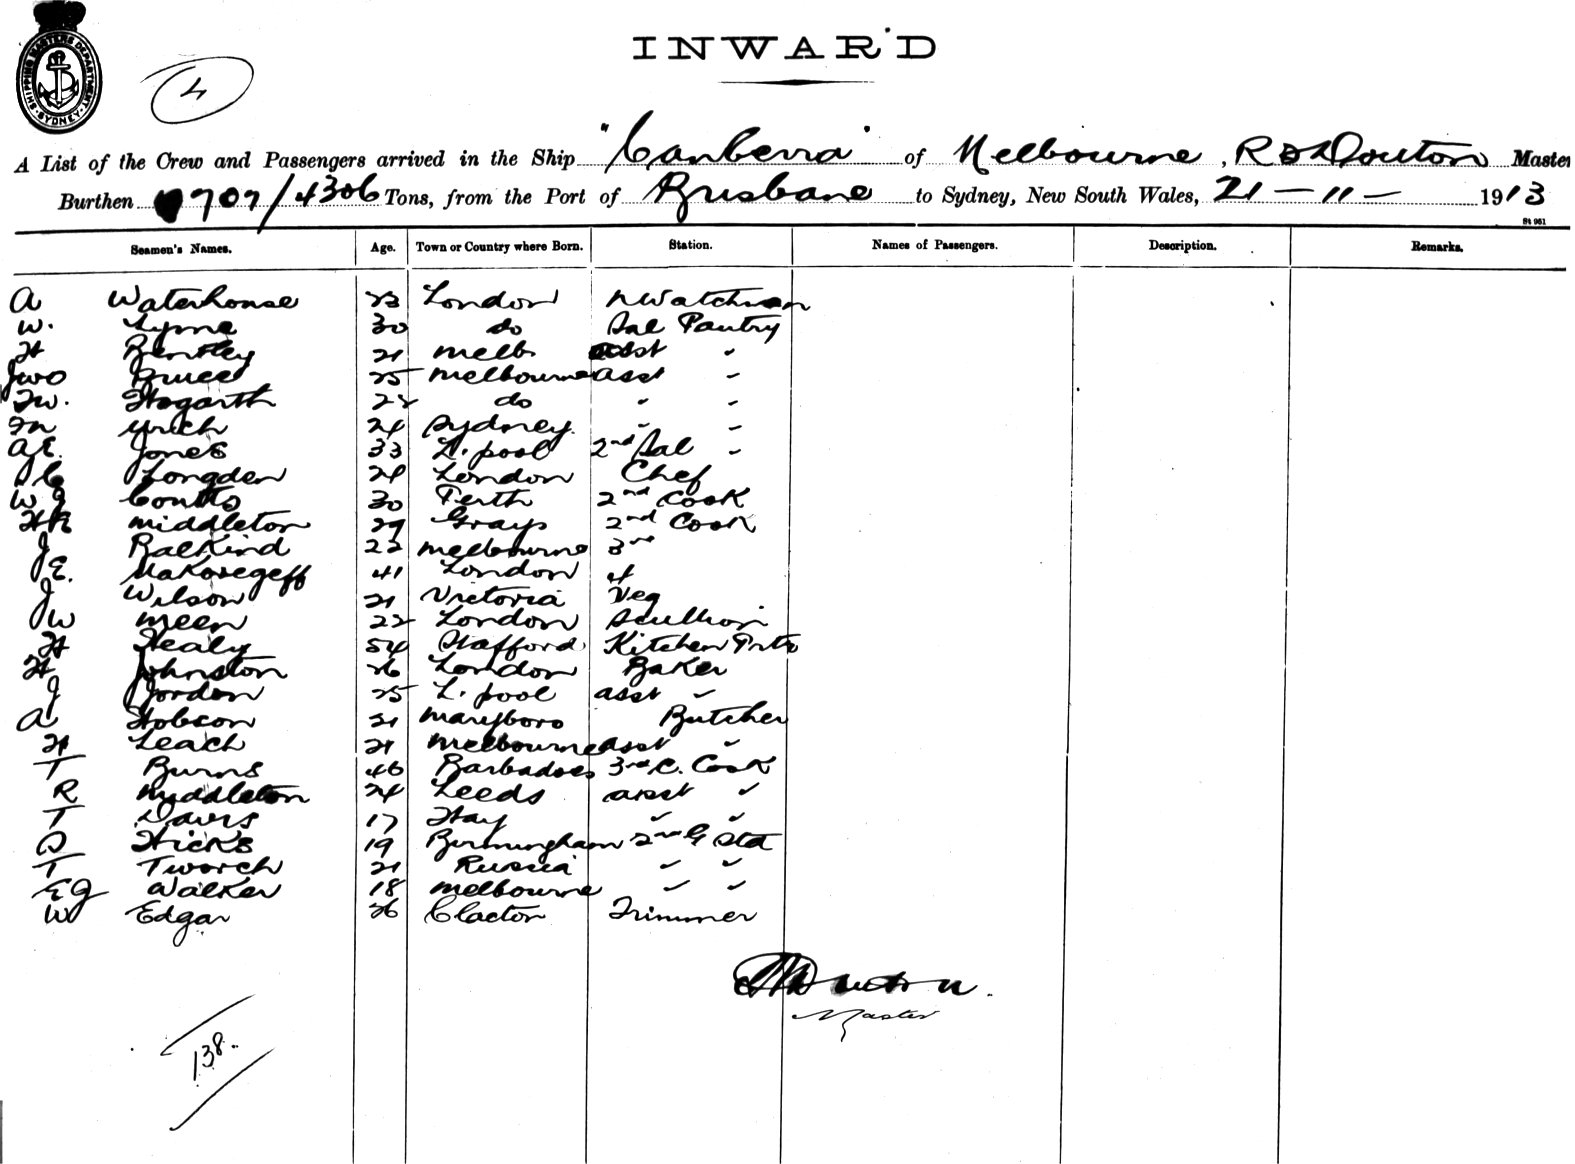 SHIPPING MASTERS DEPARTMENT SYDNEY
4
INWARD
A List of the Crew and Passengers arrived in the Ship "Canberra" of Melbourne, R D Douton Master
Burthen 7707/4306 Tons, from the Port of Brisbane to Sydney, New South Wales, 21-11-1913
St 961
Seamen's Names. Age. Town or Country where Born. Station. Names of Passengers. Description. Remarks.
A Waterhouse 23 London N Watchman
W. Lyne 30 do Sal Pantry
H Bentley 21 Melb asst "
JWO Bruce 25 Melbourne asst "
TW. Hogarth 22 do " "
M 24 Sydney. " "
AE. Jones 33 L.pool 2nd Sal "
C Longden 24 London Chef
WJ Coutts 30 Perth 2nd Cook
HR Middleton 29 Grays 2nd Cook
J Balkind 22 Melbourne 3rd
JE. 41 London 4
J Wilson 21 Victoria Veg
JW Meen 22 London Scullion
H Healy 54 Stafford Kitchen Prtr
H Johnston 26 London Baker
J Jordon 25 L.pool asst "
A Hobson 21 Maryboro Butcher
H Leach 21 Melbourne asst "
T Burns 46 Barbados 3rd C. Cook
R Middleton 24 Leeds asst "
T Davis 17 Hay " "
A Hicks 19 Birmingham 2nd G Std
T Tworch 21 Russia " "
EJ Walker 18 Melbourne " "
W Edgar 26 Clacton Trimmer
Douton.
Master
138.